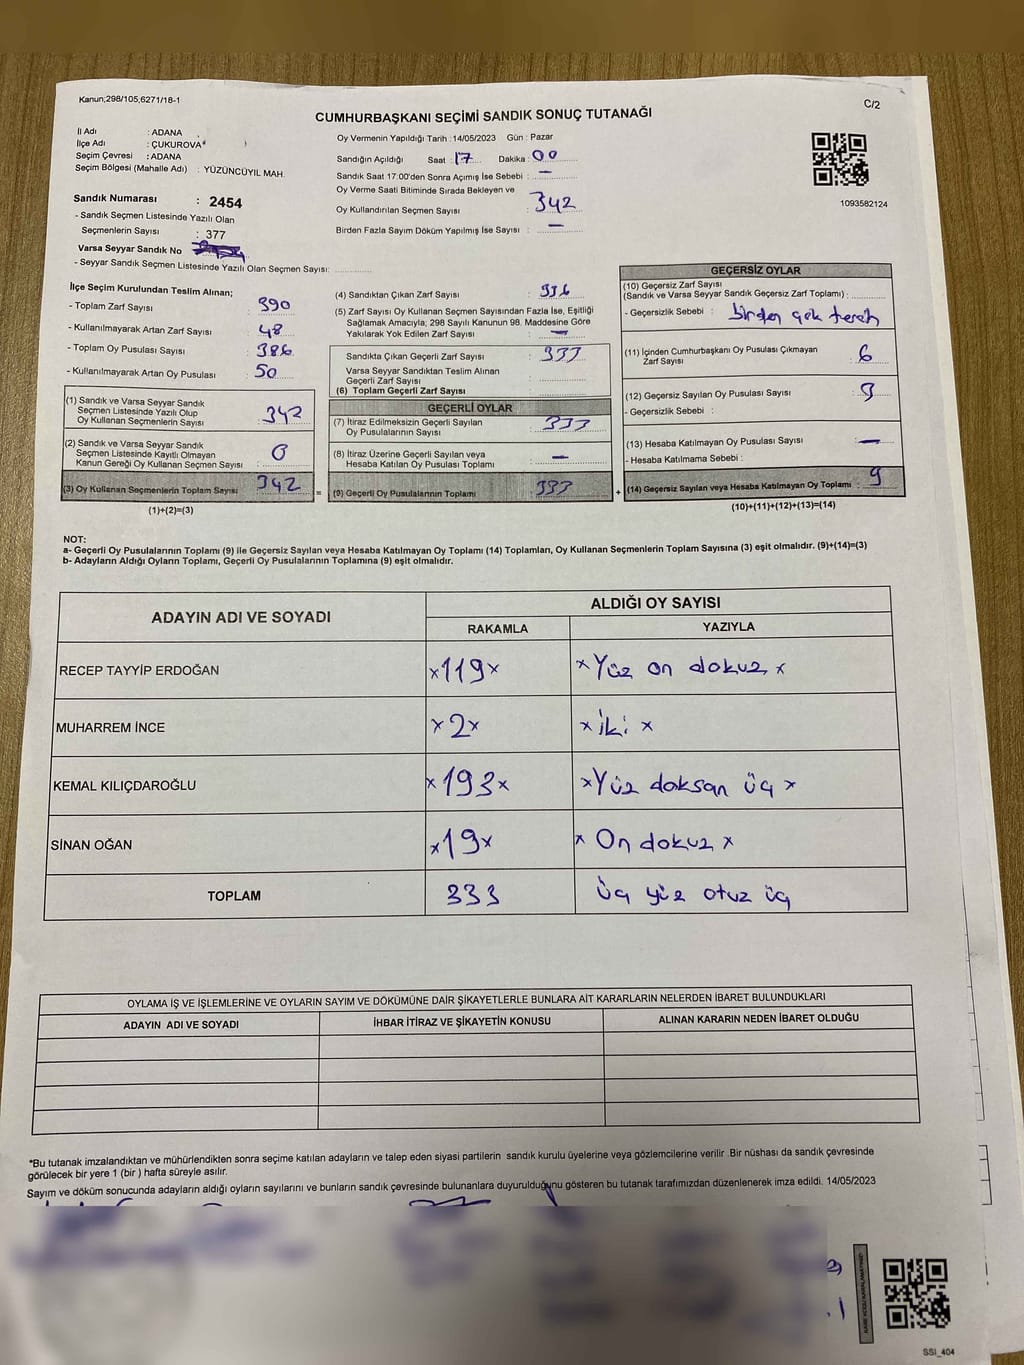 Kanun;298/105,6271/18-1
C/2
CUMHURBAŞKANI SEÇİMİ SANDIK SONUÇ TUTANAĞI
İl Adı : ADANA
İlçe Adı : ÇUKUROVA*
Seçim Çevresi : ADANA
Seçim Bölgesi (Mahalle Adı) : YÜZÜNCÜYIL MAH.
Sandık Numarası : 2454
- Sandık Seçmen Listesinde Yazılı Olan
Seçmenlerin Sayısı : 377
Varsa Seyyar Sandık No
- Seyyar Sandık Seçmen Listesinde Yazılı Olan Seçmen Sayısı:
Oy Vermenin Yapıldığı Tarih : 14/05/2023 Gün : Pazar
Sandığın Açıldığı Saat : 17 Dakika : 00
Sandık Saat 17:00'den Sonra Açılmış İse Sebebi : —
Oy Verme Saati Bitiminde Sırada Bekleyen ve
Oy Kullandırılan Seçmen Sayısı : 342
Birden Fazla Sayım Döküm Yapılmış İse Sayısı : —
1093582124
İlçe Seçim Kurulundan Teslim Alınan;
- Toplam Zarf Sayısı : 390
- Kullanılmayarak Artan Zarf Sayısı : 48
- Toplam Oy Pusulası Sayısı : 386
- Kullanılmayarak Artan Oy Pusulası : 50
(1) Sandık ve Varsa Seyyar Sandık
Seçmen Listesinde Yazılı Olup
Oy Kullanan Seçmenlerin Sayısı : 342
(2) Sandık ve Varsa Seyyar Sandık
Seçmen Listesinde Kayıtlı Olmayan
Kanun Gereği Oy Kullanan Seçmen Sayısı : 0
(3) Oy Kullanan Seçmenlerin Toplam Sayısı : 342
(1)+(2)=(3)
(4) Sandıktan Çıkan Zarf Sayısı : 336
(5) Zarf Sayısı Oy Kullanan Seçmen Sayısından Fazla İse, Eşitliği
Sağlamak Amacıyla; 298 Sayılı Kanunun 98. Maddesine Göre
Yakılarak Yok Edilen Zarf Sayısı : —
Sandıkta Çıkan Geçerli Zarf Sayısı : 333
Varsa Seyyar Sandıktan Teslim Alınan
Geçerli Zarf Sayısı :
(6) Toplam Geçerli Zarf Sayısı :
GEÇERLİ OYLAR
(7) İtiraz Edilmeksizin Geçerli Sayılan
Oy Pusulalarının Sayısı : 333
(8) İtiraz Üzerine Geçerli Sayılan veya
Hesaba Katılan Oy Pusulası Toplamı : —
(9) Geçerli Oy Pusulalarının Toplamı : 333
GEÇERSİZ OYLAR
(10) Geçersiz Zarf Sayısı
(Sandık ve Varsa Seyyar Sandık Geçersiz Zarf Toplamı) :
- Geçersizlik Sebebi : birden çok tercih
(11) İçinden Cumhurbaşkanı Oy Pusulası Çıkmayan
Zarf Sayısı : 6
(12) Geçersiz Sayılan Oy Pusulası Sayısı : 9
- Geçersizlik Sebebi :
(13) Hesaba Katılmayan Oy Pusulası Sayısı : —
- Hesaba Katılmama Sebebi :
(14) Geçersiz Sayılan veya Hesaba Katılmayan Oy Toplamı : 9
(10)+(11)+(12)+(13)=(14)
NOT:
a- Geçerli Oy Pusulalarının Toplamı (9) ile Geçersiz Sayılan veya Hesaba Katılmayan Oy Toplamı (14) Toplamları, Oy Kullanan Seçmenlerin Toplam Sayısına (3) eşit olmalıdır. (9)+(14)=(3)
b- Adayların Aldığı Oyların Toplamı, Geçerli Oy Pusulalarının Toplamına (9) eşit olmalıdır.
ADAYIN ADI VE SOYADI
ALDIĞI OY SAYISI
RAKAMLA YAZIYLA
RECEP TAYYİP ERDOĞAN x119x xYüz on dokuz x
MUHARREM İNCE x2x x iki x
KEMAL KILIÇDAROĞLU x193x xYüz doksan üç x
SİNAN OĞAN x19x x On dokuz x
TOPLAM 333 üç yüz otuz üç
OYLAMA İŞ VE İŞLEMLERİNE VE OYLARIN SAYIM VE DÖKÜMÜNE DAİR ŞİKAYETLERLE BUNLARA AİT KARARLARIN NELERDEN İBARET BULUNDUKLARI
ADAYIN ADI VE SOYADI İHBAR İTİRAZ VE ŞİKAYETİN KONUSU ALINAN KARARIN NEDEN İBARET OLDUĞU
*Bu tutanak imzalandıktan ve mühürlendikten sonra seçime katılan adayların ve talep eden siyasi partilerin sandık kurulu üyelerine veya gözlemcilerine verilir .Bir nüshası da sandık çevresinde
görülecek bir yere 1 (bir ) hafta süreyle asılır.
Sayım ve döküm sonucunda adayların aldığı oyların sayılarını ve bunların sandık çevresinde bulunanlara duyurulduğunu gösteren bu tutanak tarafımızdan düzenlenerek imza edildi. 14/05/2023
SSI_404